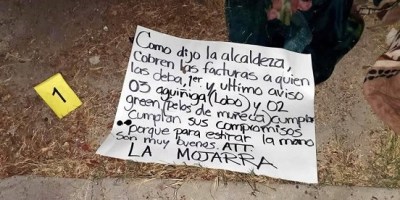 Como dijo la alcaldeza,
Cobren las facturas a quien
las deba, 1er. y ultimo aviso
03 aguiñiga (Lobo) y 02
green (pelos de muñeca) cumplan
cumplan sus compromisos
porque para estirar la mano
son muy buenos. ATT.
LA MOJARRA
1